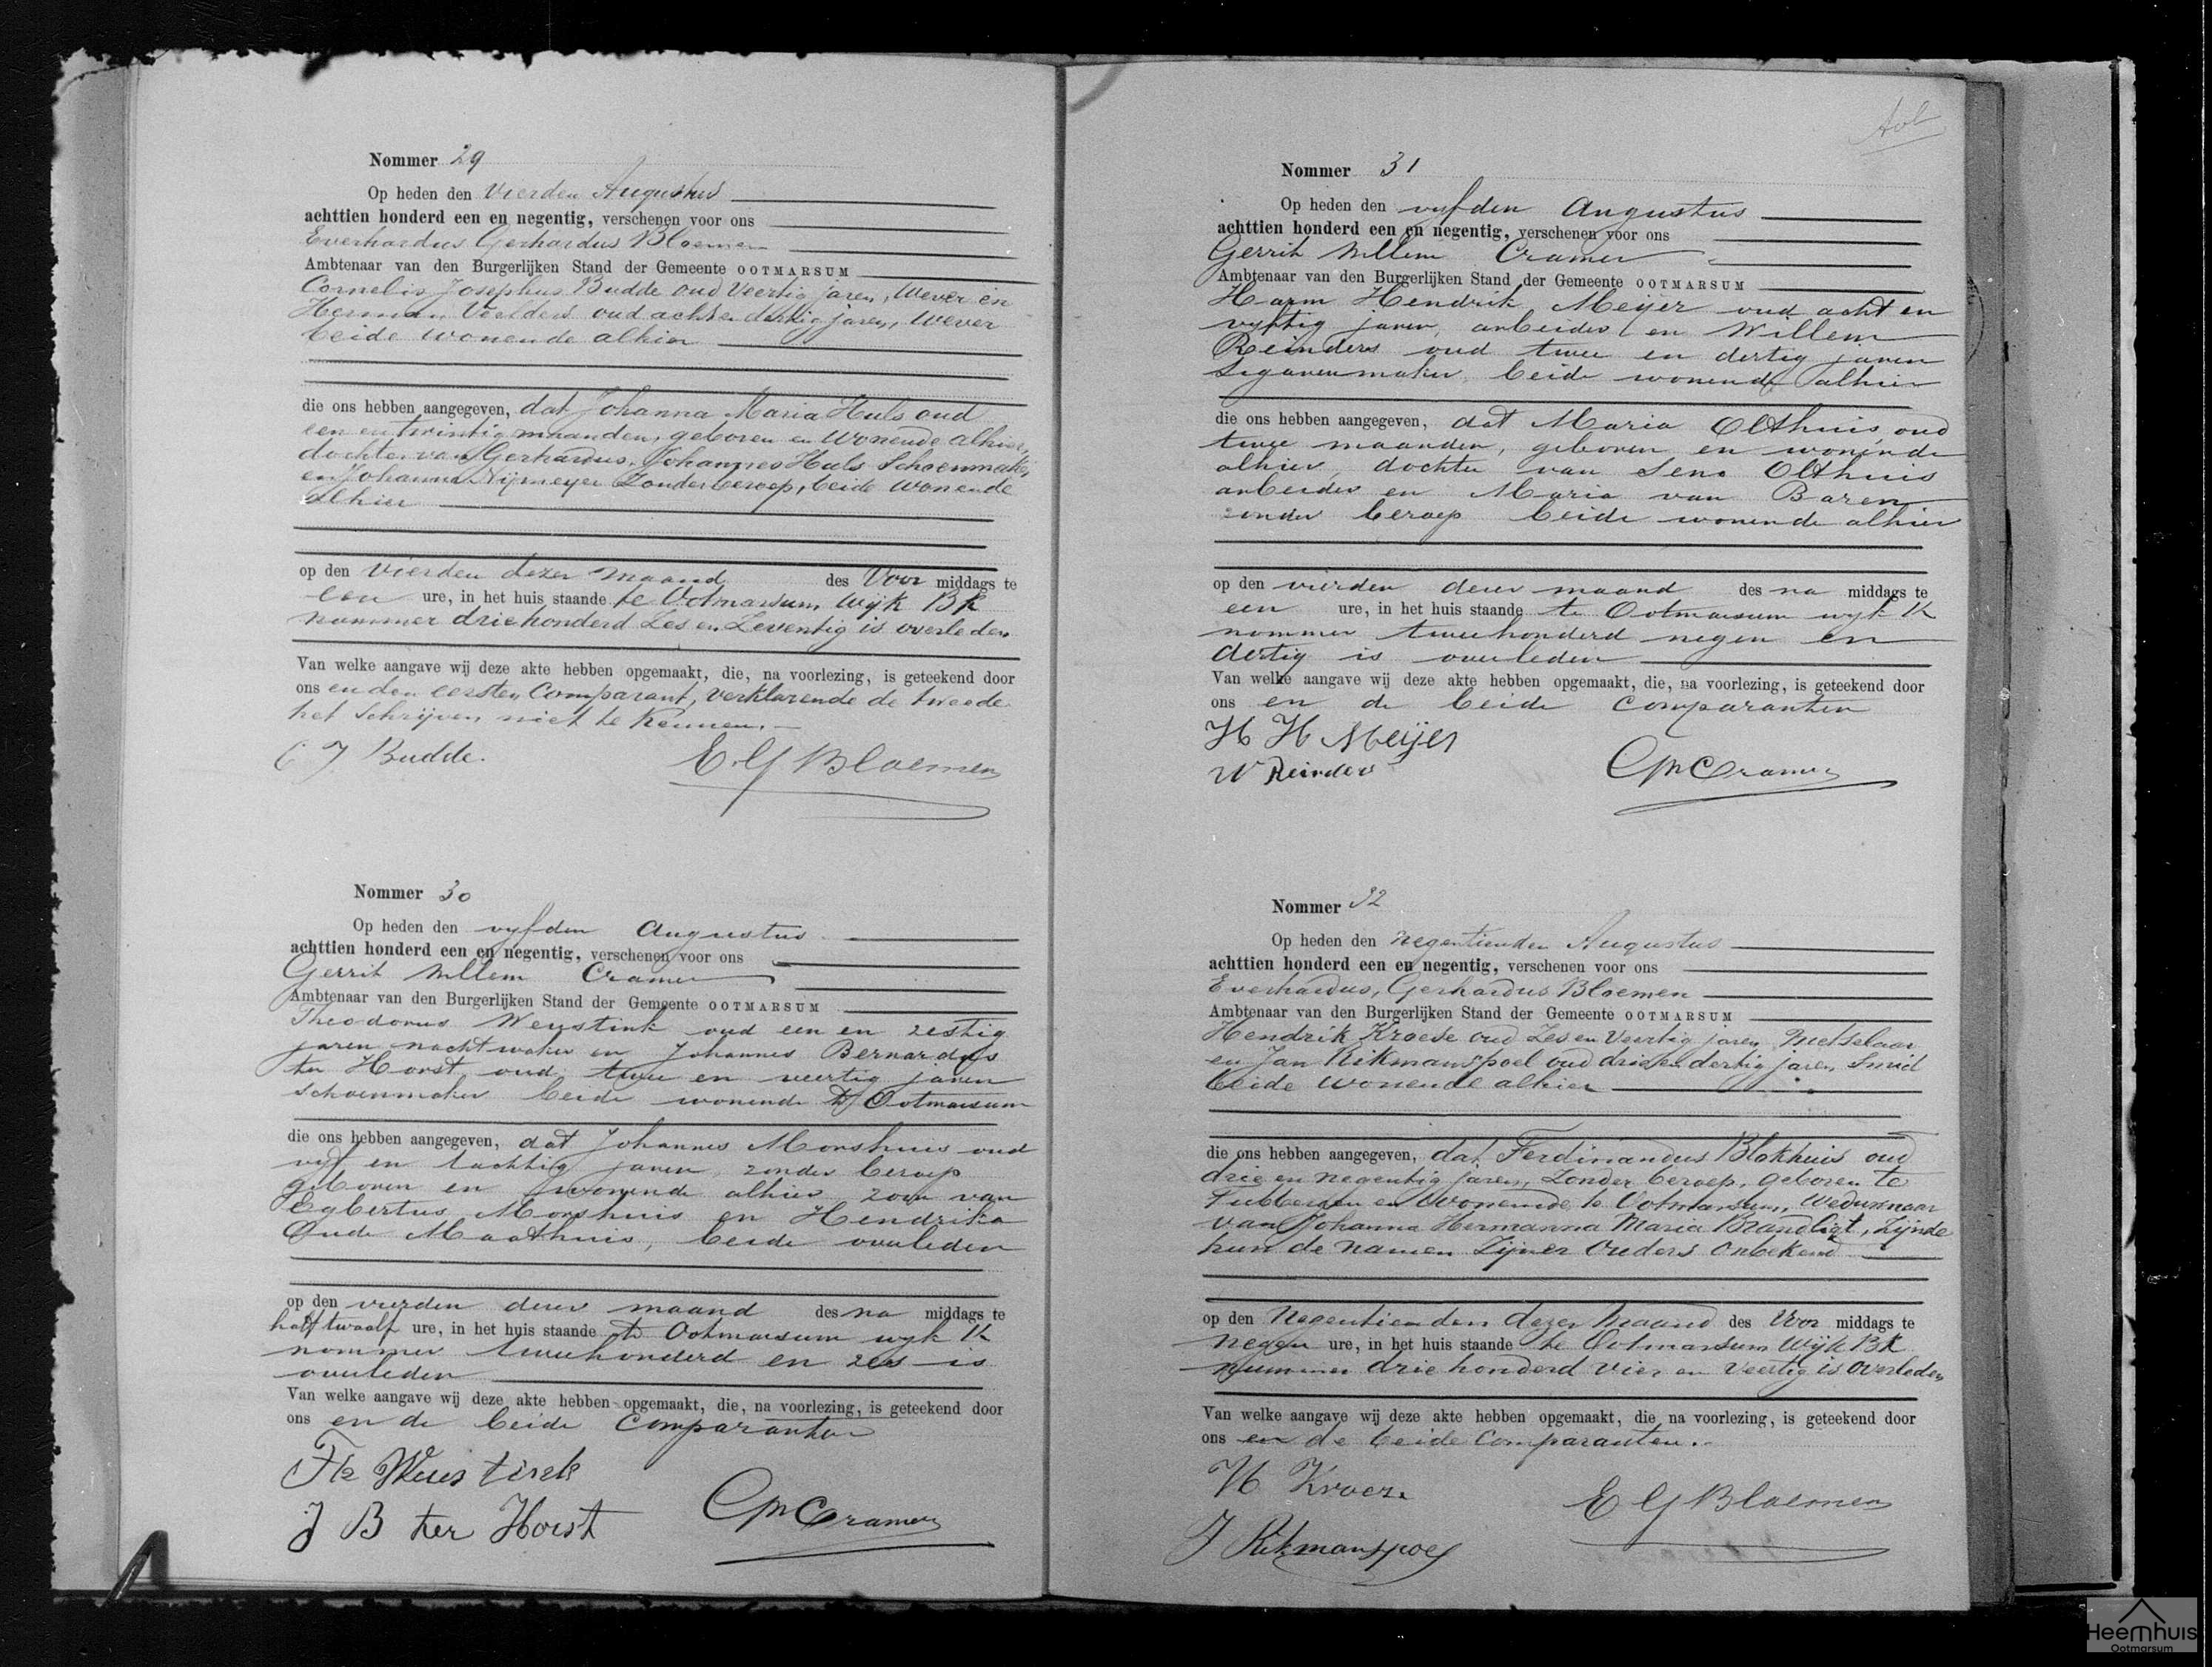 Nommer 29
Op heden den Vierden Augustus
achttien honderd een en negentig, verschenen voor ons
Everhardus Gerhardus Bloemen
Ambtenaar van den Burgerlijken Stand der Gemeente OOTMARSUM
Cornelis Josephus Budde oud Veertig jaren, Wever en
Herman Voelders oud acht en dertig jaren, Wever
beide wonende alhier
die ons hebben aangegeven, dat Johanna Maria Huls oud
een en twintig maanden, geboren en Wonende alhier,
dochter van Gerhardus Johannes Huls Schoenmaker
en Johanna Nijmeyer Zonder beroep, beide Wonende
alhier
op den Vierden dezer maand des Voor middags te
een ure, in het huis staande te Ootmarsum Wijk BK
nommer driehonderd Zes en Zeventig is overleden
Van welke aangave wij deze akte hebben opgemaakt, die, na voorlezing, is geteekend door
ons en den eersten Comparant, verklarende de tweede
het Schrijven niet te Kennen.
C J Budde.
E. G Bloemen
Nommer 30
Op heden den vyfden Augustus
achttien honderd een en negentig, verschenen voor ons
Gerrit Willem Cramer
Ambtenaar van den Burgerlijken Stand der Gemeente OOTMARSUM
Theodorus Weustink oud een en zestig
jaren nachtwaker en Johannes Bernardus
ter Horst oud twee en veertig jaren
schoenmaker beide wonende te Ootmarsum
die ons hebben aangegeven, dat Johannes Morshuis oud
vyf en tachtig jaren, zonder beroep
geboren en wonende alhier zoon van
Egbertus Morshuis en Hendrika
Oude Maathuis, beide overleden
op den vierden dezer maand des na middags te
half twaalf ure, in het huis staande te Ootmarsum wyk K
nommer tweehonderd en zes is
overleden
Van welke aangave wij deze akte hebben opgemaakt, die, na voorlezing, is geteekend door
ons en de beide Comparanten
Th Weustink
J B ter Horst
GWCramer
Nommer 31
Op heden den vyfden Augustus
achttien honderd een en negentig, verschenen voor ons
Gerrit Willem Cramer
Ambtenaar van den Burgerlijken Stand der Gemeente OOTMARSUM
Harm Hendrik Meijer oud acht en
vyftig jaren, arbeider en Willem
Reinders oud twee en dertig jaren
Sigarenmaker, beide wonende alhier
die ons hebben aangegeven, dat Maria Olthuis, oud
twee maanden, geboren en wonende
alhier, dochter van Seno Olthuis
arbeider en Maria van Baren
zonder beroep beide wonende alhier
op den vierden dezer maand des na middags te
een ure, in het huis staande te Ootmarsum wyk K
nommer tweehonderd negen en
dertig is overleden
Van welke aangave wij deze akte hebben opgemaakt, die, na voorlezing, is geteekend door
ons en de beide Comparanten
H H Meijer
W Reinders
GWCramer
Nommer 32
Op heden den negentienden Augustus
achttien honderd een en negentig, verschenen voor ons
Everhardus, Gerhardus Bloemen
Ambtenaar van den Burgerlijken Stand der Gemeente OOTMARSUM
Hendrik Kroeze oud Zes en Veertig jaren Metselaar
en Jan Rikmanspoel oud drie en dertig jaren Smid
beide wonende alhier
die ons hebben aangegeven, dat Ferdinandus Blokhuis oud
drie en negentig jaren, Zonder beroep, geboren te
Tubbergen en Wonende te Ootmarsum, Weduwnaar
van Johanna Hermanna Maria Brandligt, Zijnde
hun de namen Zijner Ouders Onbekend
op den Negentienden dezer Maand des Voor middags te
Negen ure, in het huis staande te Ootmarsum Wijk BK
nummer drie honderd Vier en Veertig is Overleden
Van welke aangave wij deze akte hebben opgemaakt, die na voorlezing, is geteekend door
ons en de beide Comparanten.
H Kroeze
J Rikmanspoel
E G Bloemen
Heemhuis
Ootmarsum